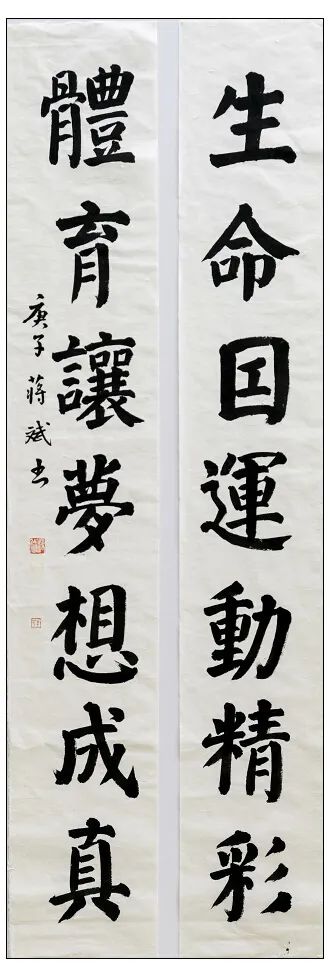 生命因運動精彩
體育讓夢想成真
庚子蔣斌書